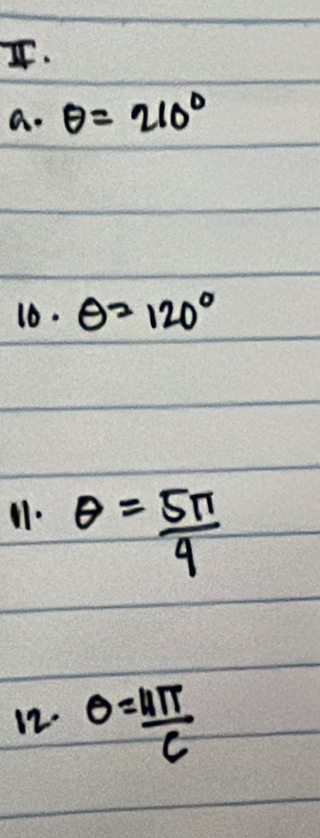 II.
a. θ = 210°
10. θ = 120°
11. θ = 5π/4
12. θ = 11π/6